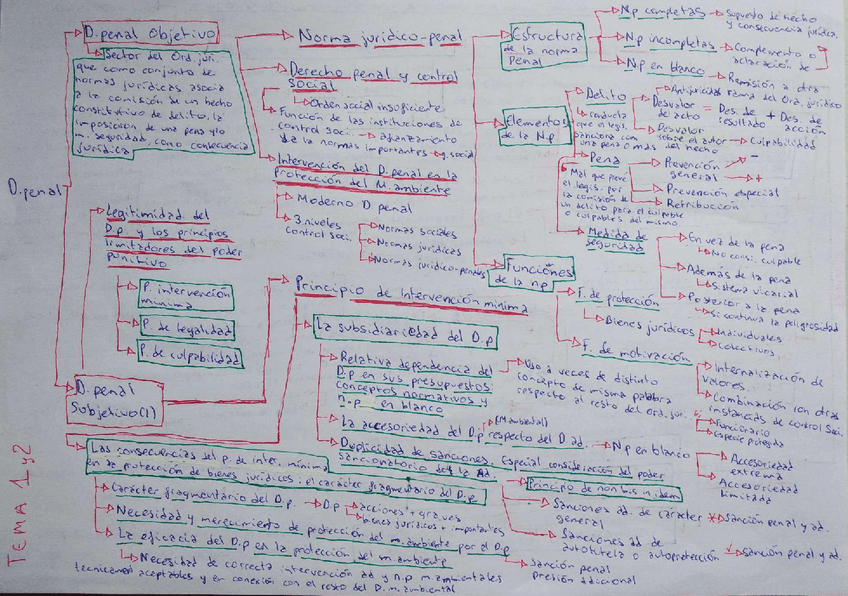 TEMA 1 y 2
D.penal
D.penal Objetivo
Sector del Ord. juri.
que como conjunto de
normas jurídicas asocia
a la comisión de un hecho
constitutivo de delito, la
imposición de una pena y/o
m. seguridad, como consecuencia
jurídica
Norma jurídico-penal
Derecho penal y control
social
Orden social insuficiente
Función de las instituciones de
control soci. → afianzamiento
de la normas importantes → g. social
Intervención del D.penal en la
protección del M.ambiente
Moderno D penal
3 niveles
control soci.
Normas sociales
Normas jurídicas
Normas jurídico-penales
Estructura
de la norma
Penal
Np completas → Supuesto de hecho
y consecuencia jurídica.
Np incompletas → Complemento o
aclaración de
Np en blanco → Remisión a otra
rama del Ord. jurídico
Elementos
de la N.p
Delito
conducta
que el legis.
sanciona con
una pena
Antijuricidad
Desvalor
de acto
= Des. de + Des. de
resultado acción
Desvalor
sobre el autor → Culpabilidad
o más del hecho
Pena
Mal que prevé
el legis. por
la comisión de
un delito para el culpable
o culpables del mismo
Prevención
general
-
+
Prevención especial
Retribución
Medida de
seguridad
En vez de la pena
No consi. culpable
Además de la pena
Sistema vicarial
Posterior a la pena
Si continua la peligrosidad
Funciones
de la n.p
F. de protección
Bienes jurídicos
Individuales
Colectivos
F. de motivación
Internalización de
valores.
Combinación con otras
instancias de control Soci.
Funcionario
Especie protegida
Legitimidad del
D.p y los principios
limitadores del poder
punitivo
P. intervención
mínima
P. de legalidad
P. de culpabilidad
D. penal
Subjetivo (1)
Principio de Intervención mínima
La subsidiariedad del D.p
Relativa dependencia del
D.p en sus presupuestos:
conceptos normativos y
n.p en blanco
Uso a veces de distinto
concepto de misma palabra
respecto al resto del Ord. jur.
La accesoriedad del D.p respecto del D ad.
(M ambiental)
Np en blanco
Accesoriedad
extrema
Accesoriedad
limitada
Duplicidad de sanciones. Especial consideración del poder
sancionatorio de la Ad.
Principio de non bis in idem
Sanciones ad. de carácter
general
Sanción penal y ad.
Sanciones ad de
autotutela o autoprotección
Sanción penal y ad.
Las consecuencias del P. de inter. mínima
en la protección de bienes jurídicos: el carácter fragmentario del D.p
Carácter fragmentario del D.p. → D.p
acciones + graves
bienes jurídicos + importantes
Necesidad y merecimiento de protección del m.ambiente por el D.p
La eficacia del D.p en la protección del m.ambiente
Sanción penal
Presión adicional
Necesidad de correcta intervención ad y n.p m ambientales
tecnicamen aceptables y en conexión con el resto del D. m.ambiental